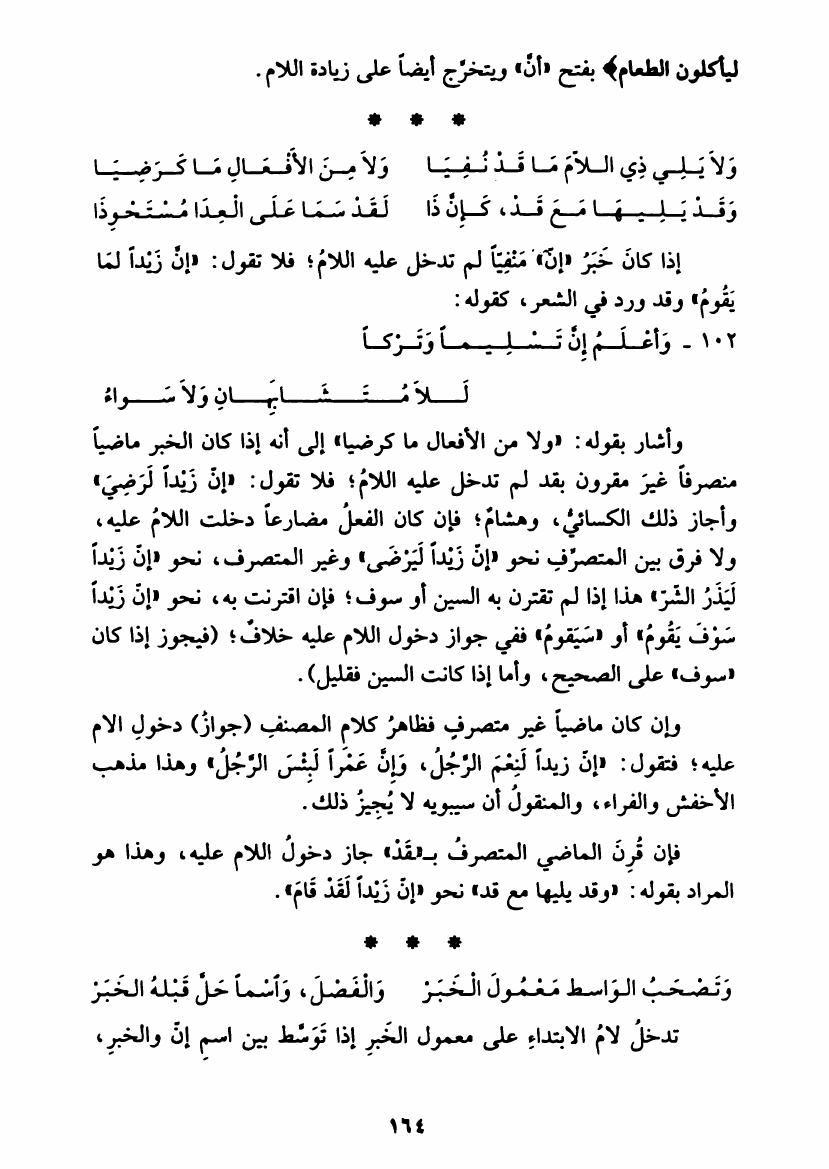 ليأكلون الطعام﴾ بفتح «أنَّ» ويتخرَّج أيضاً على زيادة اللام.
* * *
وَلاَ يَـلِـي ذِي الـلاَّمَ مَـا قَـدْ نُـفِـيَـا وَلاَ مِـنَ الأَفْـعَـالِ مَـا كَـرَضِـيَـا
وَقَـدْ يَـلِـيـهَـا مَـعَ قَـدْ، كَـإِنَّ ذَا لَـقَـدْ سَـمَـا عَـلَـى الْـعِـدَا مُـسْـتَـحْـوِذَا
إذا كانَ خَبَرُ «إنّ» مَنْفِيّاً لم تدخل عليه اللامُ؛ فلا تقول: «إنَّ زَيْداً لمَا
يَقُومُ» وقد ورد في الشعر، كقوله:
١٠٢ - وَأعْـلَـمُ إنَّ تَـسْـلِـيـمـاً وَتَـرْكـاً
لَـلاَ مُـتَـشَـابِـهَـانِ وَلاَ سَـواءُ
وأشار بقوله: «ولا من الأفعال ما كرضيا» إلى أنه إذا كان الخبر ماضياً
منصرفاً غيرَ مقرون بقد لم تدخل عليه اللامُ؛ فلا تقول: «إنّ زَيْداً لَرَضِيَ»
وأجاز ذلك الكسائيُّ، وهشامٌ؛ فإن كان الفعلُ مضارعاً دخلت اللامُ عليه،
ولا فرق بين المتصرِّفِ نحو «إنّ زَيْداً لَيَرْضَى» وغير المتصرف، نحو «إنّ زَيْداً
لَيَذَرُ الشّرّ» هذا إذا لم تقترن به السين أو سوف؛ فإن اقترنت به، نحو «إنّ زَيْداً
سَوْفَ يَقُومُ» أو «سَيَقومُ» ففي جواز دخول اللام عليه خلافٌ؛ (فيجوز إذا كان
«سوف» على الصحيح، وأما إذا كانت السين فقليل).
وإن كان ماضياً غير متصرفٍ فظاهرُ كلامِ المصنفِ (جوازُ) دخولِ الام
عليه؛ فتقول: «إنّ زيداً لَنِعْمَ الرَّجُلُ، وَإنَّ عَمْراً لَبِئْسَ الرَّجُلُ» وهذا مذهب
الأخفش والفراء، والمنقولُ أن سيبويه لا يُجِيزُ ذلك.
فإن قُرِنَ الماضي المتصرفُ بـ«قَدْ» جاز دخولُ اللام عليه، وهذا هو
المراد بقوله: «وقد يليها مع قد» نحو «إنّ زَيْداً لَقَدْ قَامَ».
* * *
وَتَـصْـحَـبُ الـوَاسـط مَـعْـمُـولَ الْـخَـبَـرْ وَالْـفَـصْـلَ، وَاسْـمـاً حَـلَّ قَـبْـلـهُ الـخَـبَـرْ
تدخلُ لامُ الابتداءِ على معمول الخَبرِ إذا تَوَسَّط بين اسمِ إنّ والخبرِ،
١٦٤